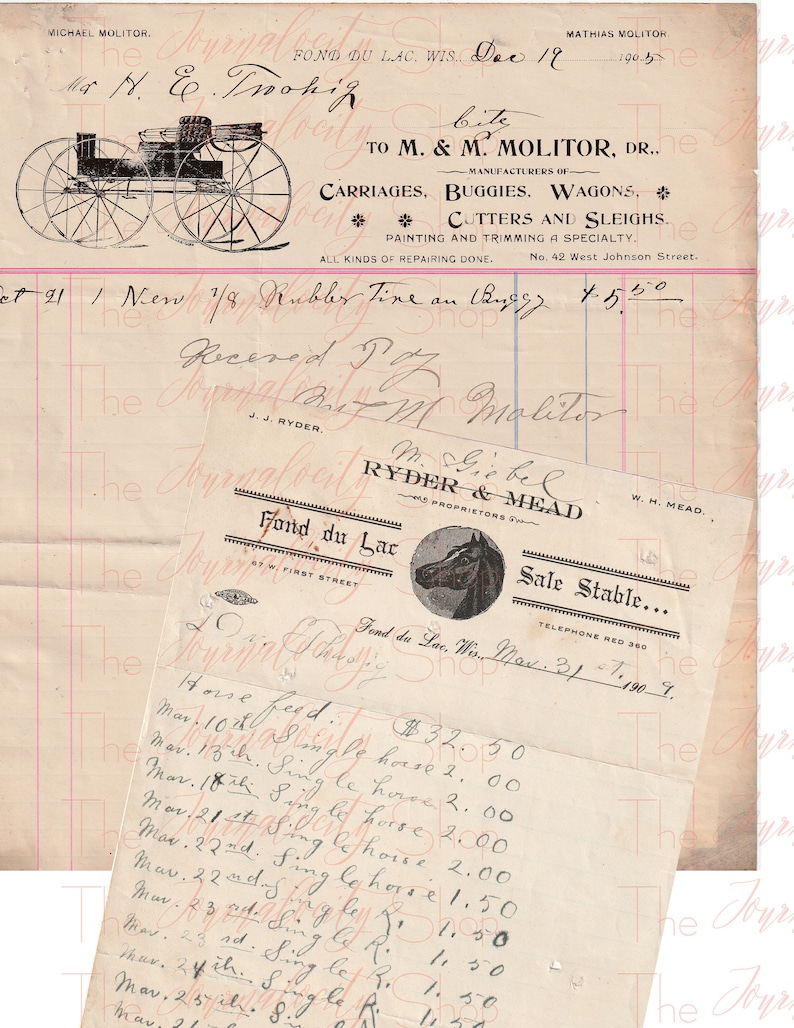 MICHAEL MOLITOR.
MATHIAS MOLITOR.
FOND DU LAC, WIS., Dec 19 1905
Mr H. E. Twohig
City
TO M. & M. MOLITOR, DR.,
MANUFACTURERS OF
CARRIAGES, BUGGIES, WAGONS,
CUTTERS AND SLEIGHS.
PAINTING AND TRIMMING A SPECIALTY.
ALL KINDS OF REPAIRING DONE.
No. 42 West Johnson Street.
Oct 21 1 New 7/8 Rubber Tire on Buggy $5.50
Received Pay
M Molitor
J. J. RYDER.
W. H. MEAD.
M. Giebel
RYDER & MEAD
PROPRIETORS
Fond du Lac
Sale Stable...
67 W. FIRST STREET
TELEPHONE RED 360
Fond du Lac, Wis., Mar. 31st. 1909.
Dr.
Horse feed. $32.50
Mar. 10th Single horse 2.00
Mar. 13th. Single horse 2.00
Mar. 18th. Single horse 2.00
Mar. 21st Single horse. 2.00
Mar. 22nd. Single horse 1.50
Mar. 22nd. Single R. 1.50
Mar. 23rd. Single R. 1.50
Mar. 23rd. Single R. 1.50
Mar. 24th. Single R.
Mar. 25th. Single
The Journalocity Shop